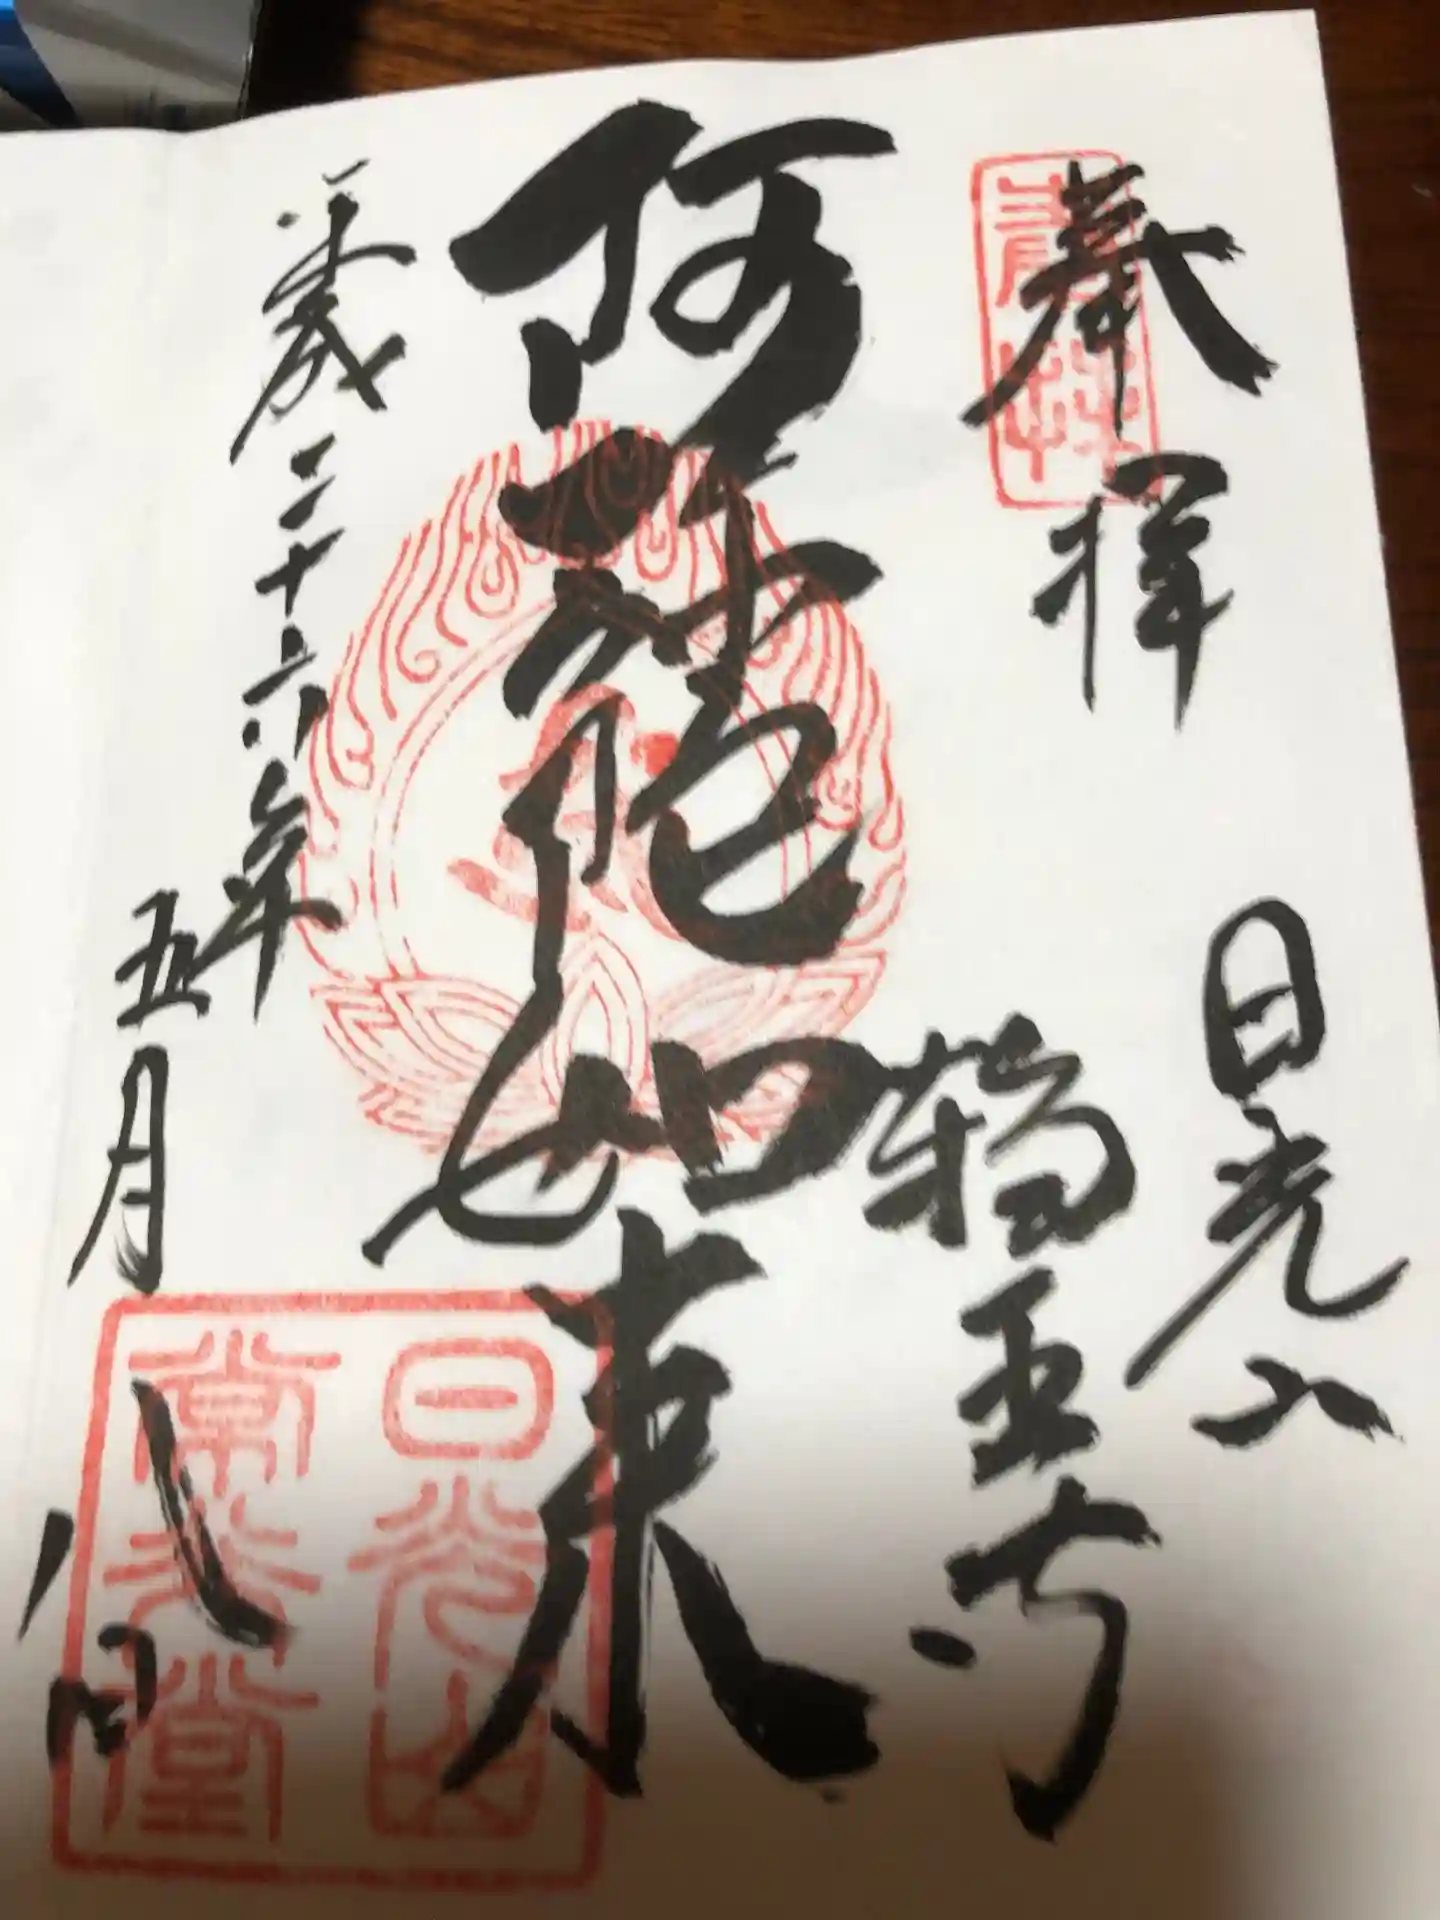 奉拝
日光山
輪王寺
阿弥陀如来
平成二十六年
五月
八日
日光山
常行堂